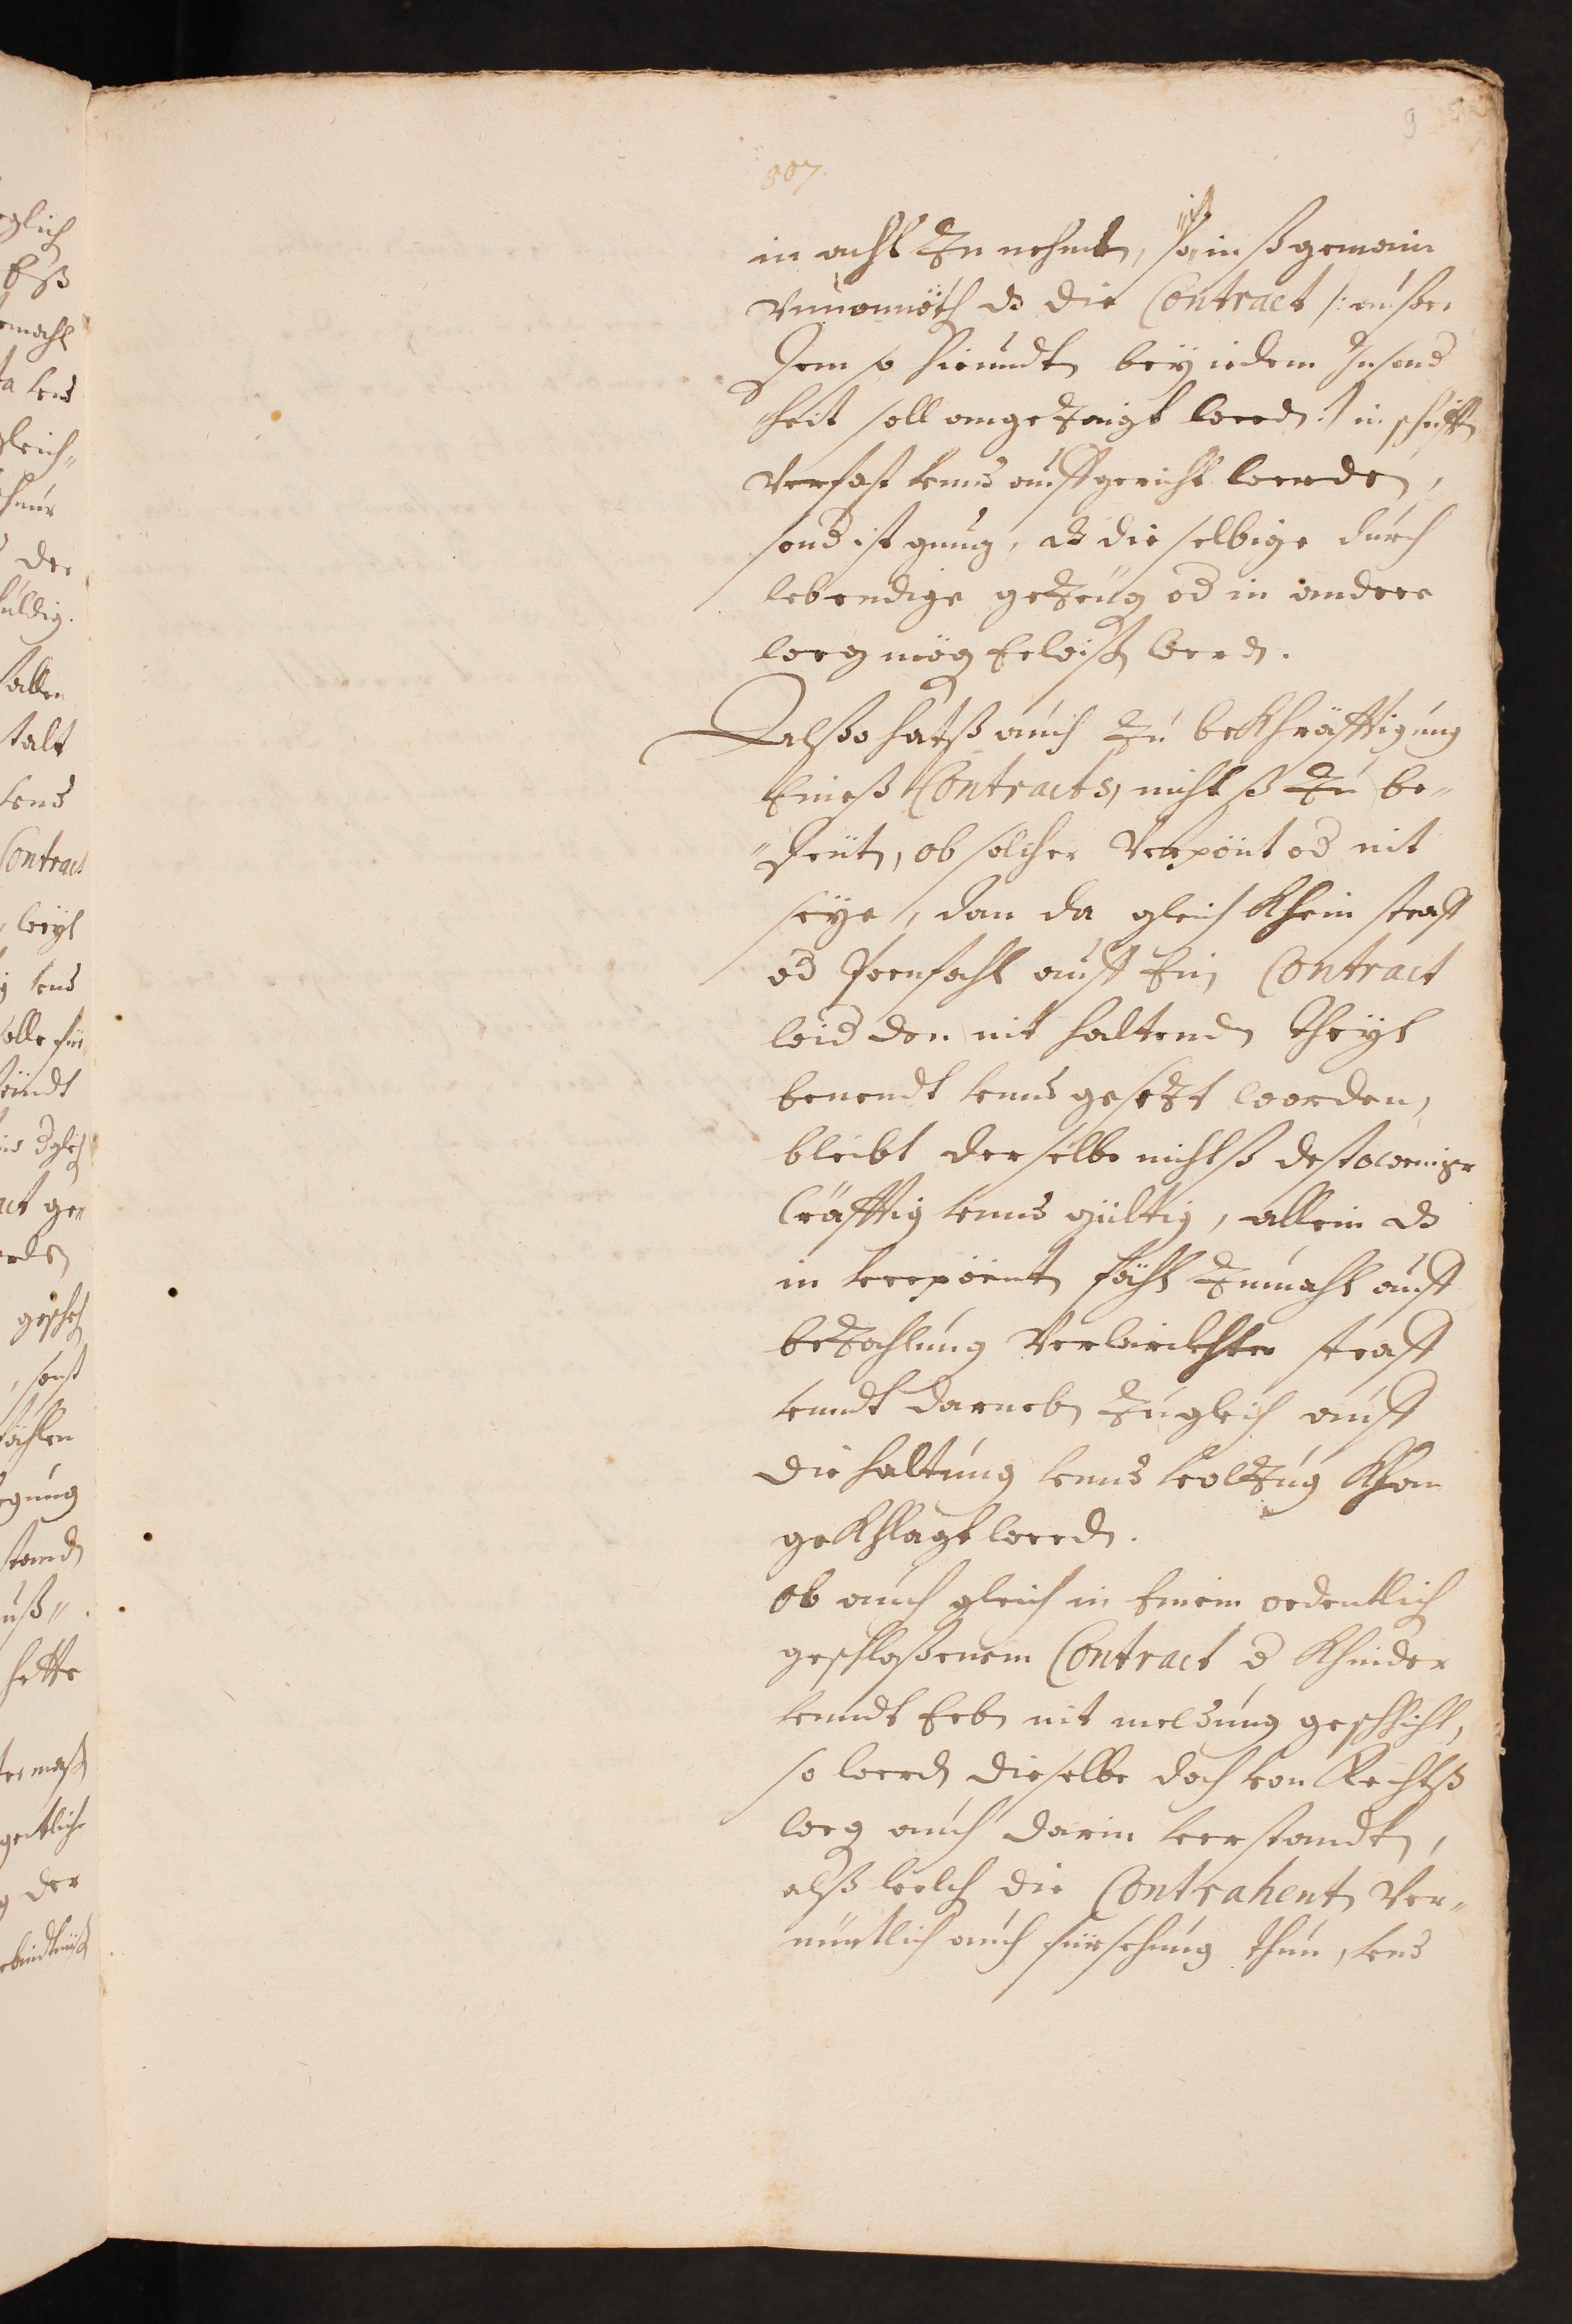 9
307.
in acht Zu nehmen, so ist inßgemain
vnuonnöth dz die Contract /: ausser
dem so hieundtn bey iedem Insond
heit soll angeZaigt werdn :/ in schrifftn
verfast vnnd auffgericht werden,
sond ist gnug, dz dieselbige durch
lebendige geZeüg od in andere
weg mög Erwißn werdn.
Alßo hatß auch Zu bekhräfftigung
Eineß Contracts, nichtß Zu be„
„deütn, ob solcher verpönt od nit
seye, dan da gleich khein straff
od Poenfahl auff Ein Contract
wid den nit haltendn theyl
benendt vnnd gesezt worden,
bleibt derselbe nichtß destoweniger
Cräfftig vnnd gültig, allein dz
in verpöentn fähl Zumahl auff
beZahlung verwirckhter straff
vnndt darnebn Zugleich auff
die haltung vnnd volZug khan
gekhlagt werdn.
Ob auch gleich in Einem ordentlich
geschloßenem Contract d Khinder
vnndt Erbn nit meldung geschicht,
so werdn dieselbe doch von Rechtß
weg auch darin verstandtn,
alß welch die Contrahentn ver„
nüntlich auch fürsehung thun, vnd